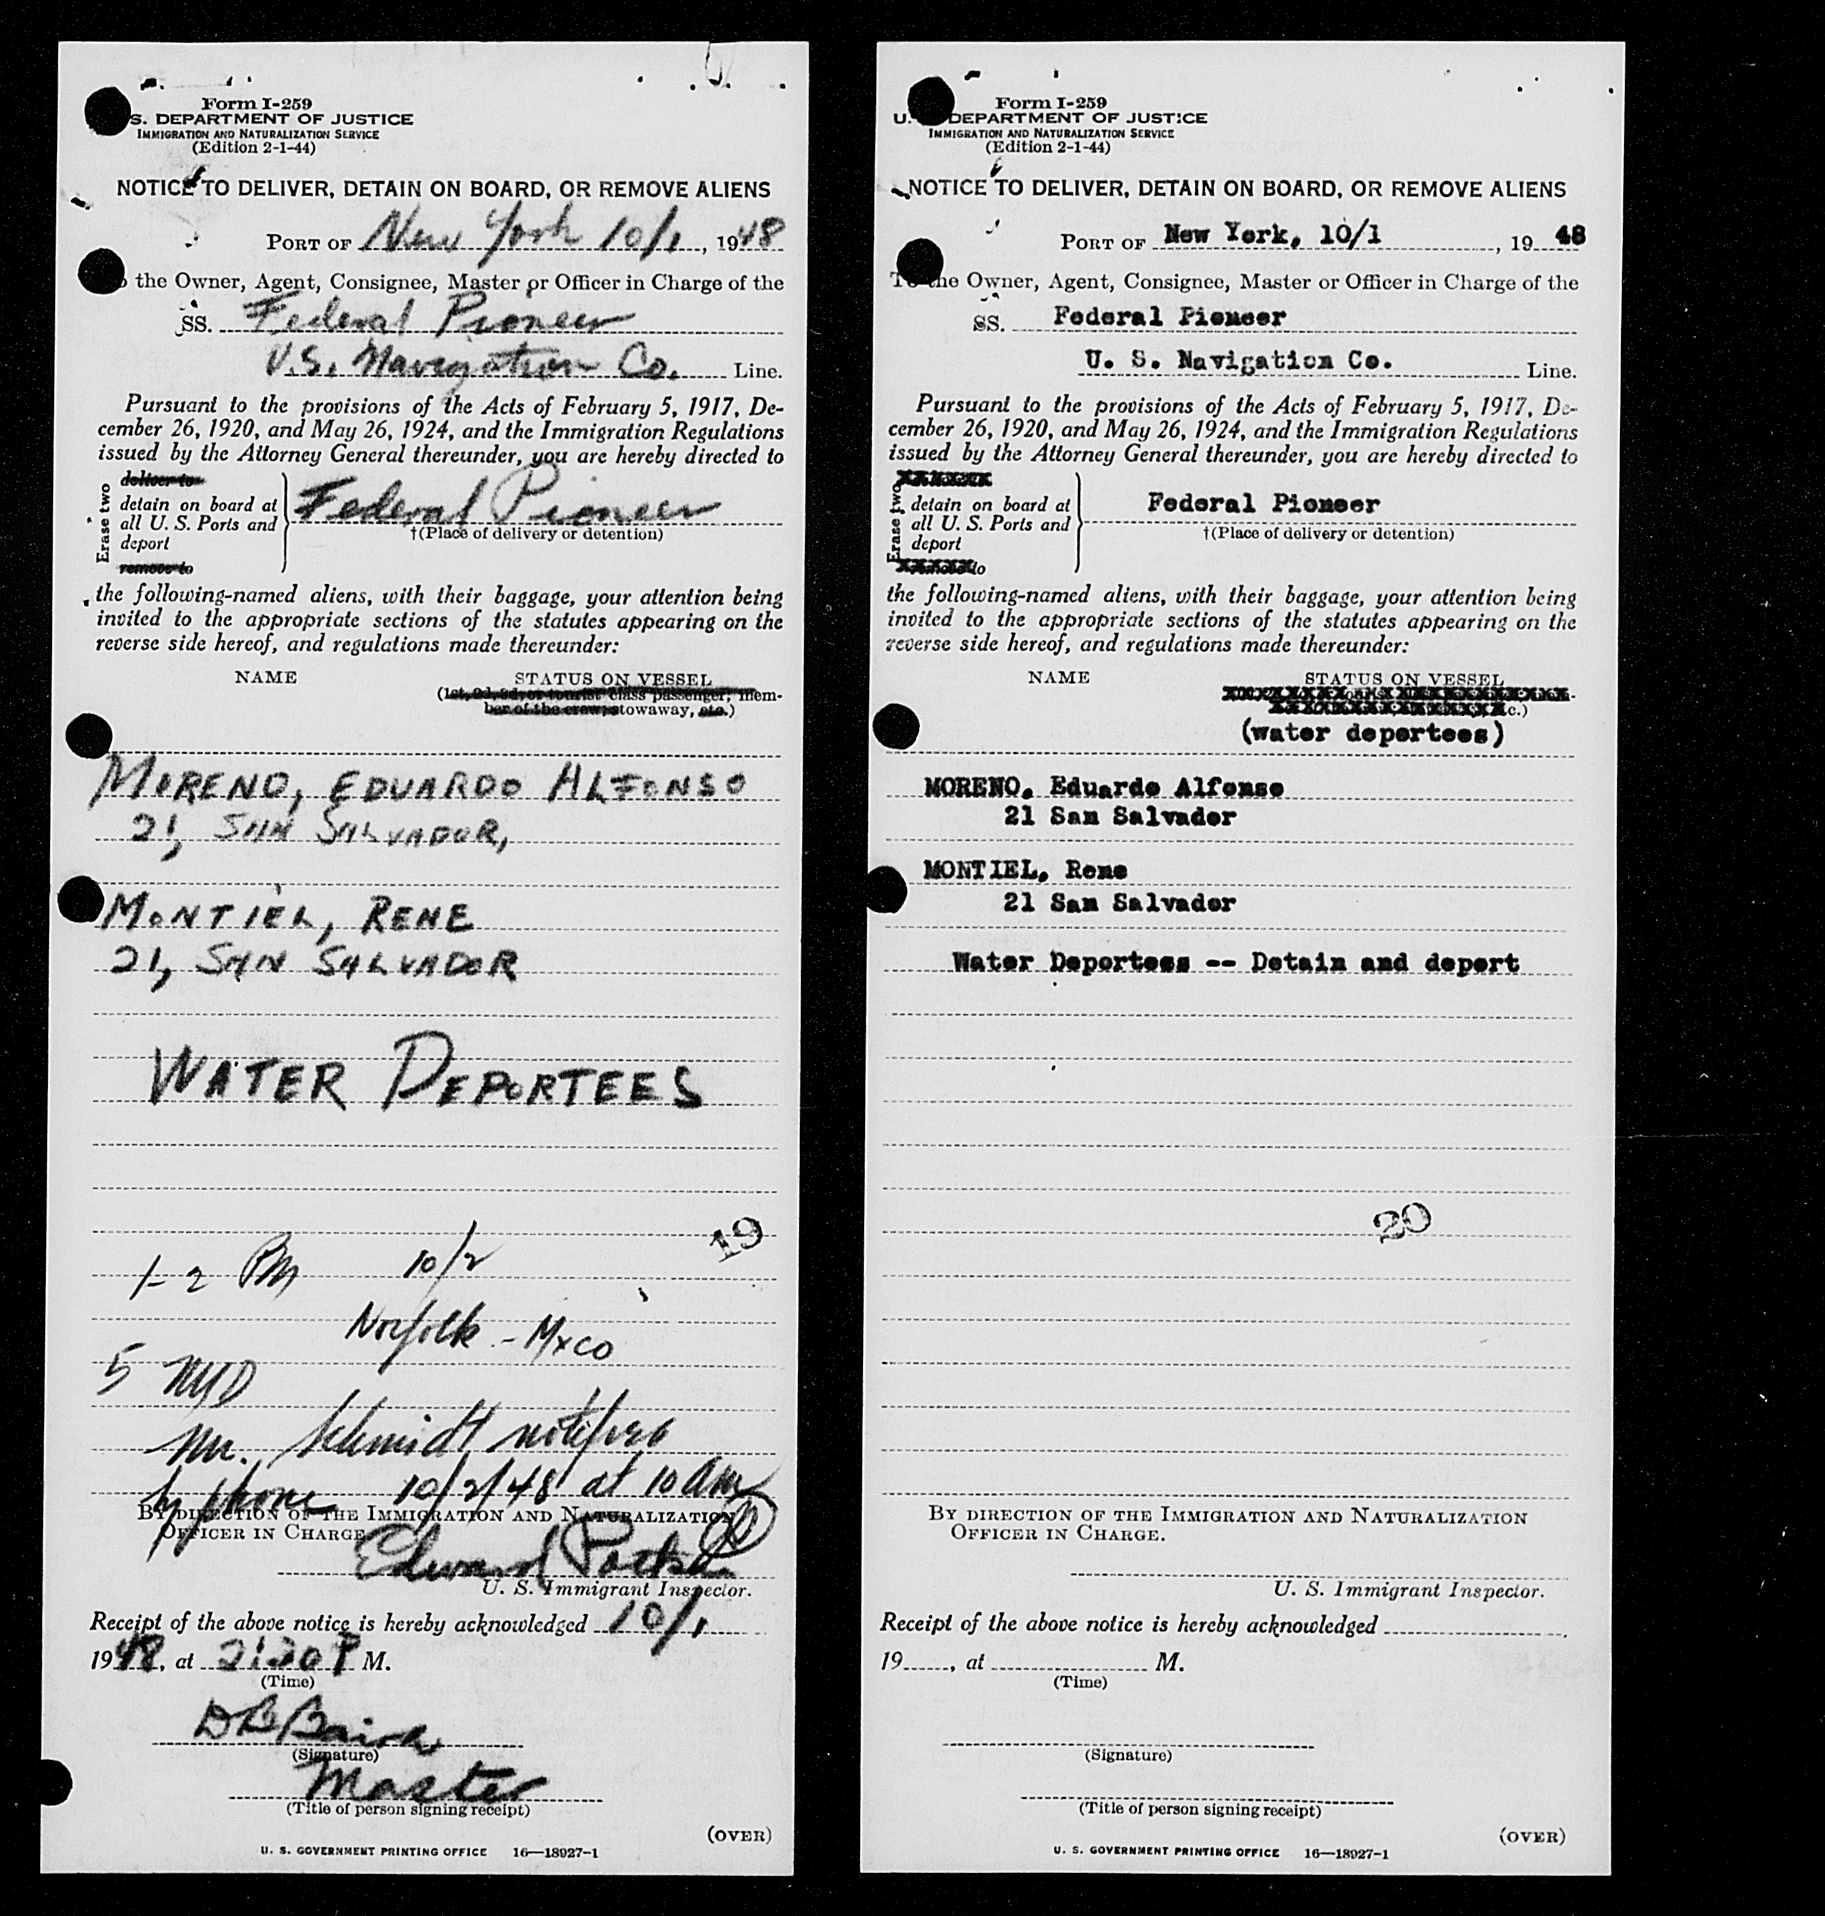 Form I-259
S. DEPARTMENT OF JUSTICE
IMMIGRATION AND NATURALIZATION SERVICE
(Edition 2-1-44)
NOTICE TO DELIVER, DETAIN ON BOARD, OR REMOVE ALIENS
PORT OF New York 10/1, 1948
the Owner, Agent, Consignee, Master or Officer in Charge of the
SS. Federal Pioneer
U.S. Navigation Co. Line.
Pursuant to the provisions of the Acts of February 5, 1917, De-
cember 26, 1920, and May 26, 1924, and the Immigration Regulations
issued by the Attorney General thereunder, you are hereby directed to
Erase two
deliver to
detain on board at
all U. S. Ports and
deport
remove to
Federal Pioneer
†(Place of delivery or detention)
the following-named aliens, with their baggage, your attention being
invited to the appropriate sections of the statutes appearing on the
reverse side hereof, and regulations made thereunder:
NAME STATUS ON VESSEL
(1st, 2d, 3d, or tourist class passenger, mem-
ber of the crew, stowaway, etc.)
MORENO, EDUARDO ALFONSO
21, SAN SALVADOR,
MONTIEL, RENE
21, SAN SALVADOR
WATER DEPORTEES
19
1-2 PM 10/2
Norfolk - Mxco
5 NYD
Mr. Schmidt notified
by phone 10/2/48 at 10 am
BY DIRECTION OF THE IMMIGRATION AND NATURALIZATION
OFFICER IN CHARGE
Edward
U. S. Immigrant Inspector.
Receipt of the above notice is hereby acknowledged 10/1
1948, at 2:20 P M.
(Time)
D B Baird
(Signature)
Master
(Title of person signing receipt)
(OVER)
U. S. GOVERNMENT PRINTING OFFICE 16—18927-1
Form I-259
U. DEPARTMENT OF JUSTICE
IMMIGRATION AND NATURALIZATION SERVICE
(Edition 2-1-44)
NOTICE TO DELIVER, DETAIN ON BOARD, OR REMOVE ALIENS
PORT OF New York, 10/1, 19 48
To the Owner, Agent, Consignee, Master or Officer in Charge of the
SS. Federal Pioneer
U. S. Navigation Co. Line.
Pursuant to the provisions of the Acts of February 5, 1917, De-
cember 26, 1920, and May 26, 1924, and the Immigration Regulations
issued by the Attorney General thereunder, you are hereby directed to
Erase two
XXXXXX
detain on board at
all U. S. Ports and
deport
to
Federal Pioneer
†(Place of delivery or detention)
the following-named aliens, with their baggage, your attention being
invited to the appropriate sections of the statutes appearing on the
reverse side hereof, and regulations made thereunder:
NAME STATUS ON VESSEL
c.)
(water deportees)
MORENO, Eduardo Alfonso
21 San Salvador
MONTIEL, Rene
21 San Salvador
Water Deportees -- Detain and deport
20
BY DIRECTION OF THE IMMIGRATION AND NATURALIZATION
OFFICER IN CHARGE.
U. S. Immigrant Inspector.
Receipt of the above notice is hereby acknowledged
19, at M.
(Time)
(Signature)
(Title of person signing receipt)
(OVER)
U. S. GOVERNMENT PRINTING OFFICE 16—18927-1